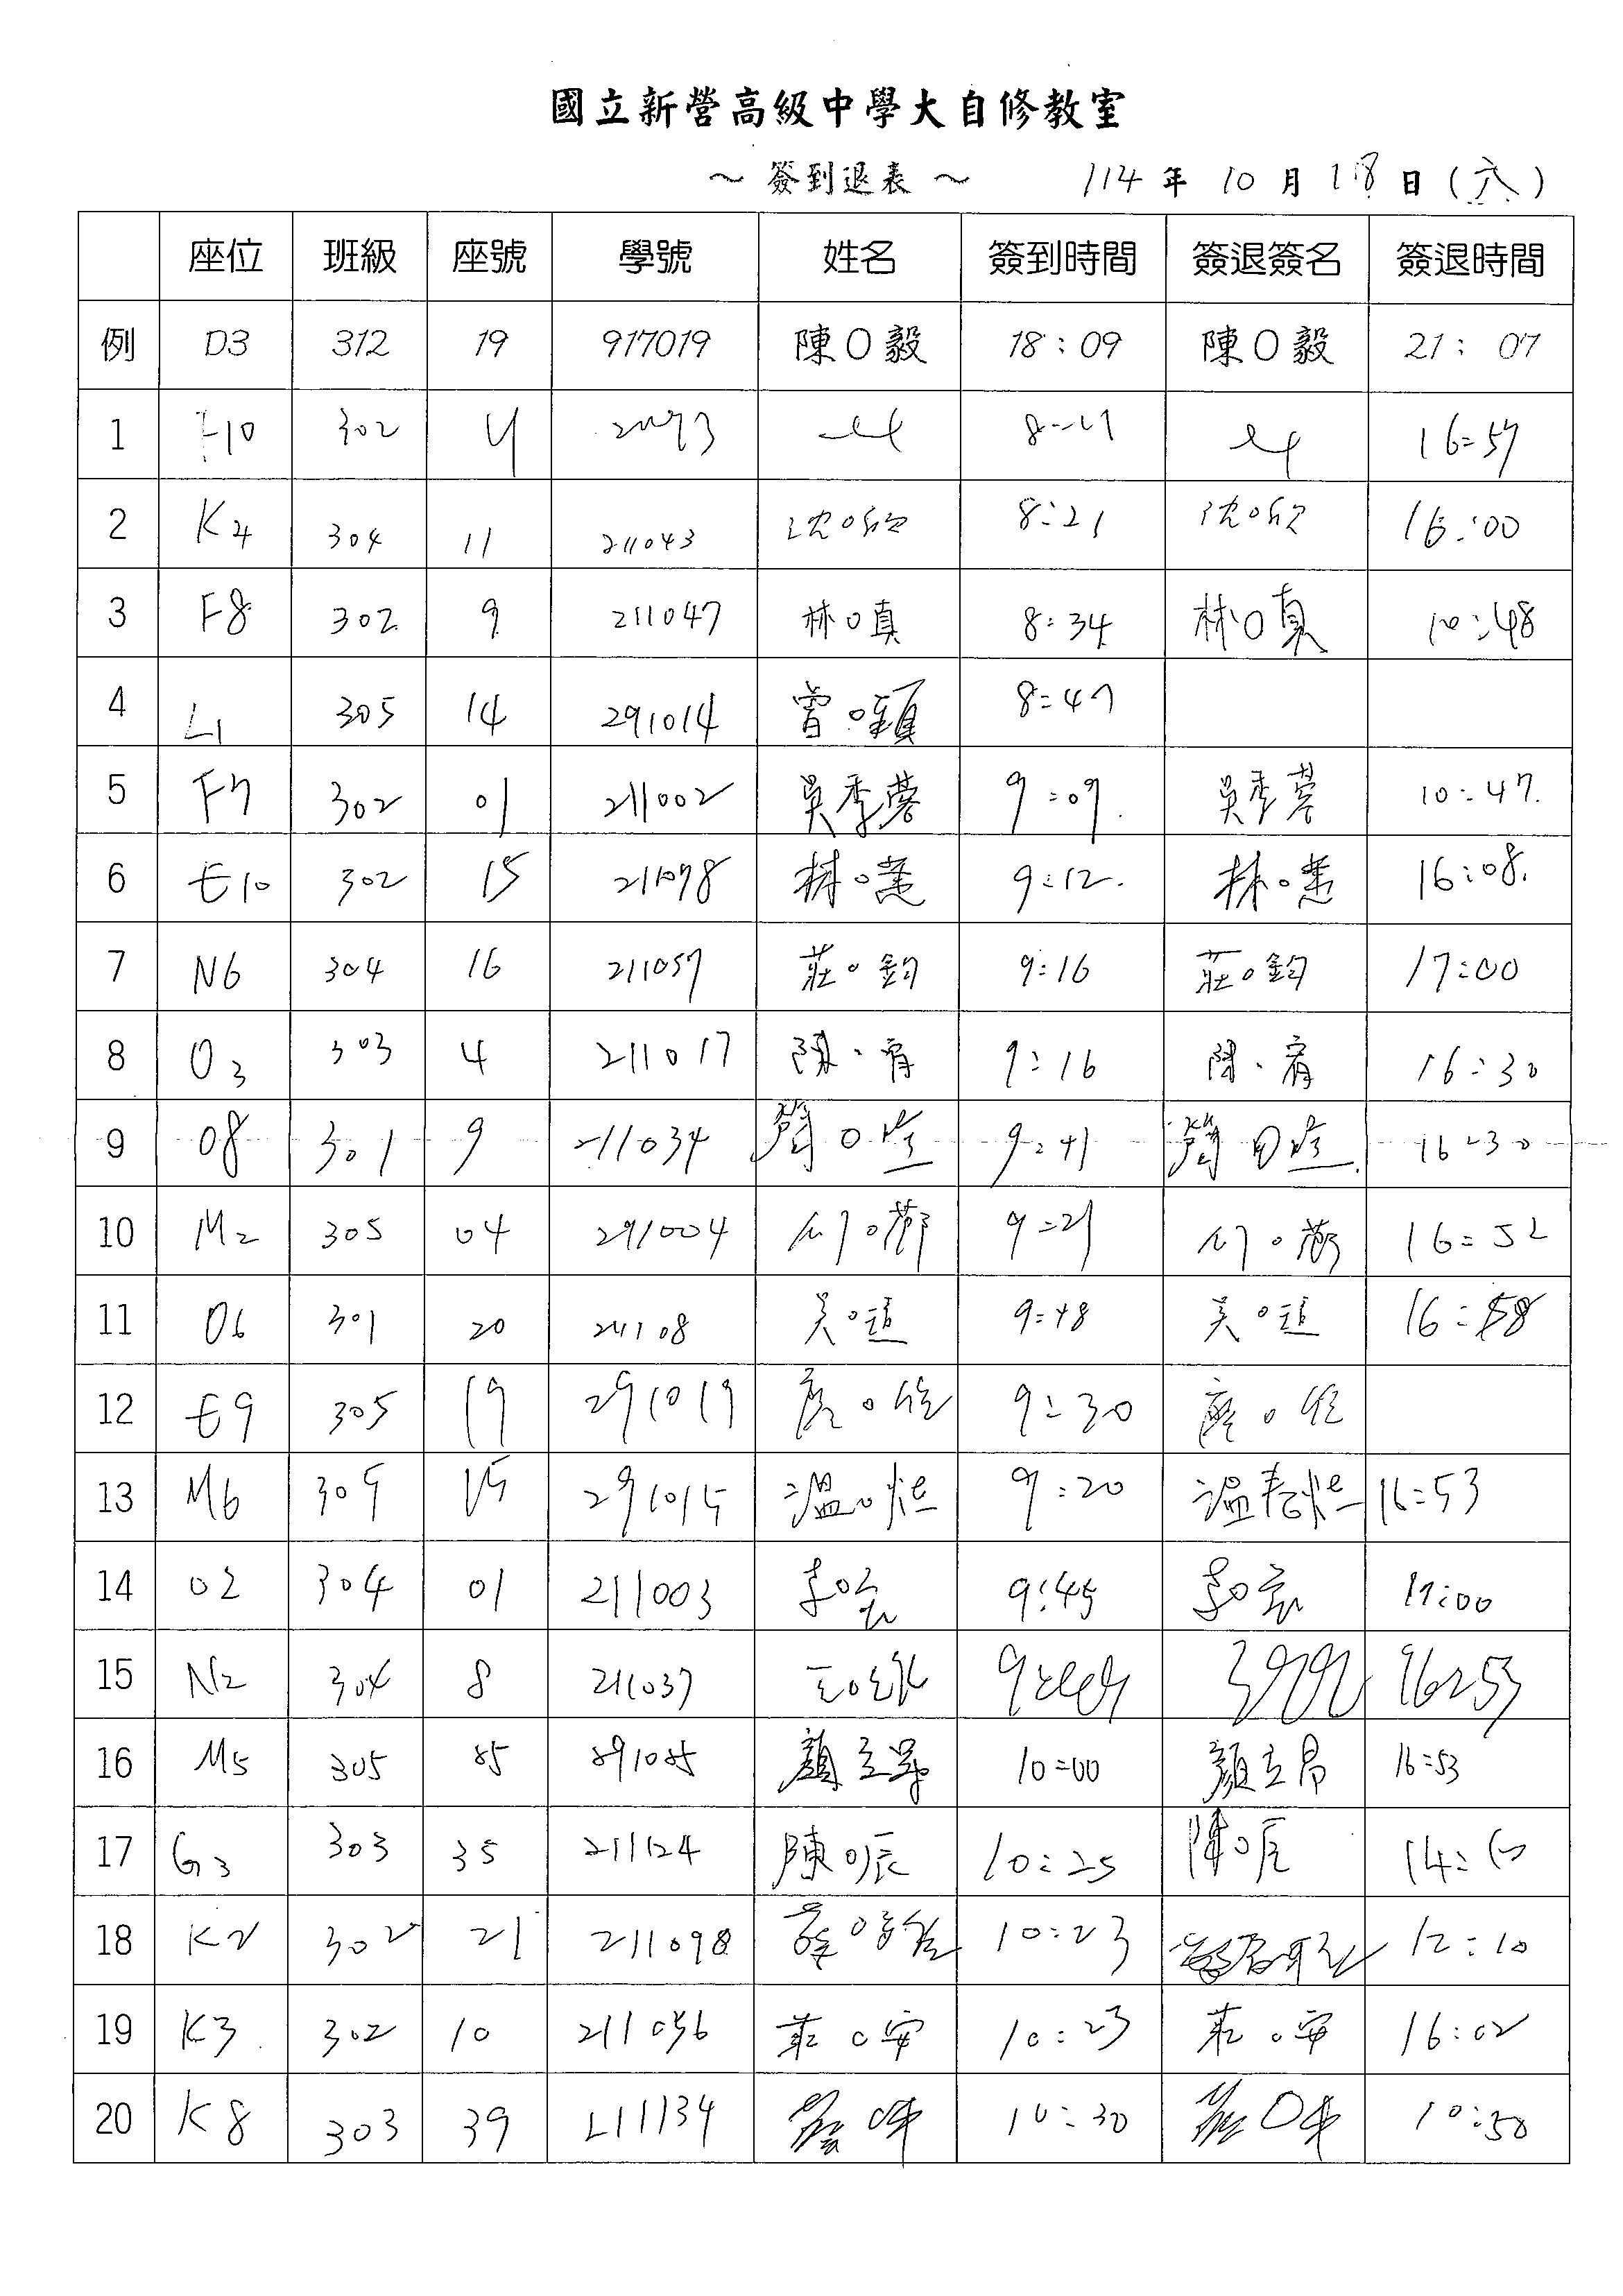 國立新營高級中學大自修教室
～ 簽到退表 ～ 114 年 10 月 18 日 (六)
座位 班級 座號 學號 姓名 簽到時間 簽退簽名 簽退時間
例 D3 312 19 917019 陳O毅 18:09 陳O毅 21:07
1 F10 302 4 16:57
2 K4 304 11 211043 沈O欣 8:21 沈O欣 16:00
3 F8 302 9 211047 林O真 8:34 林O真 10:48
4 L1 305 14 291014 曾O穎 8:47
5 F7 302 01 211002 吳季蓉 9:09 吳季蓉 10:47
6 E10 302 15 211078 林O蕙 9:12 林O蕙 16:08
7 N6 304 16 211057 莊O鈞 9:16 莊O鈞 17:00
8 O3 303 4 211017 陳O宥 9:16 陳O宥 16:30
9 O8 301 9 211034 簡O 9:41 簡O 16:30
10 M2 305 04 291004 9:21 16:52
11 O6 301 20 吳O 9:48 吳O 16:58
12 E9 305 19 291019 9:30
13 M6 305 15 291015 溫O 9:20 溫 16:53
14 O2 304 01 211003 李O 9:45 李O 17:00
15 N2 304 8 211037 16:53
16 M5 305 85 891085 顏立昂 10:00 顏立昂 16:53
17 G3 303 35 211124 陳O辰 10:25 陳O辰
18 K2 302 21 211098 10:23 12:10
19 K3 302 10 211056 莊O安 10:23 莊O安 16:02
20 K8 303 39 211134 10:30 10:50